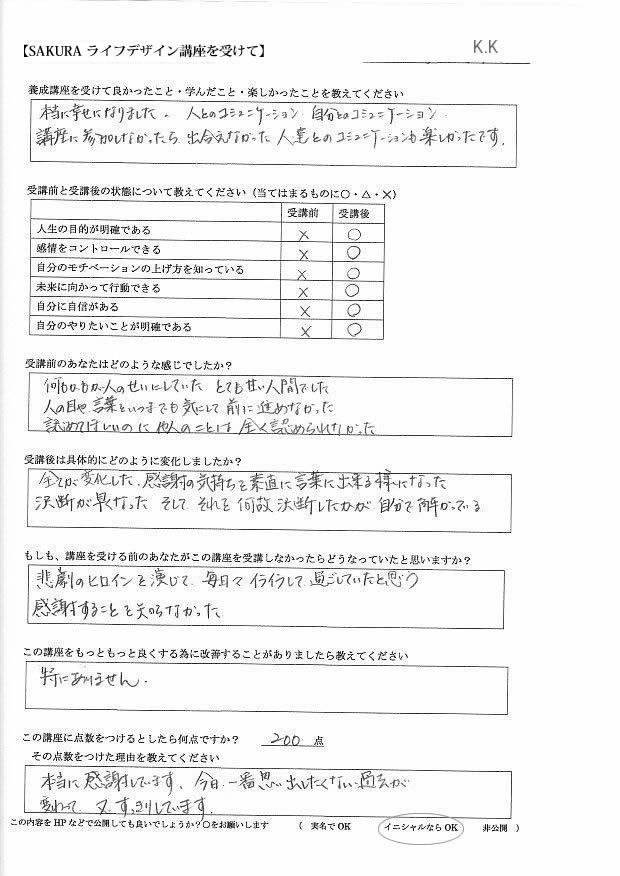 【SAKURA ライフデザイン講座を受けて】
K.K
養成講座を受けて良かったこと・学んだこと・楽しかったことを教えてください
本当に幸せになりました。人とのコミュニケーション 自分とのコミュニケーション
講座に参加しなかったら出会えなかった人達とのコミュニケーションも楽しかったです。
受講前と受講後の状態について教えてください（当てはまるものに○・△・×）
受講前 受講後
人生の目的が明確である × ○
感情をコントロールできる × ○
自分のモチベーションの上げ方を知っている × ○
未来に向かって行動できる × ○
自分に自信がある × ○
自分のやりたいことが明確である × ○
受講前のあなたはどのような感じでしたか？
何もかもが人のせいにしていた とても甘い人間でした
人の目や言葉をいつまでも気にして前に進めなかった
認めてほしいのに他人のことは全く認められなかった
受講後は具体的にどのように変化しましたか？
全てが変化した。感謝の気持ちを素直に言葉に出来る様になった
決断が早くなった そして それを何故 決断したかが 自分で解かっている
もしも、講座を受ける前のあなたがこの講座を受講しなかったらどうなっていたと思いますか？
悲劇のヒロインを演じて 毎日 イライラして過ごしていたと思う
感謝することを知らなかった
この講座をもっともっと良くする為に改善することがありましたら教えてください
特にありません。
この講座に点数をつけるとしたら何点ですか？ 200 点
その点数をつけた理由を教えてください
本当に感謝しています。今日、一番思い出したくない過去が
変わって 又、すっきりしています。
この内容を HP などで公開しても良いでしょうか？○をお願いします （ 実名で OK イニシャルなら OK 非公開 ）